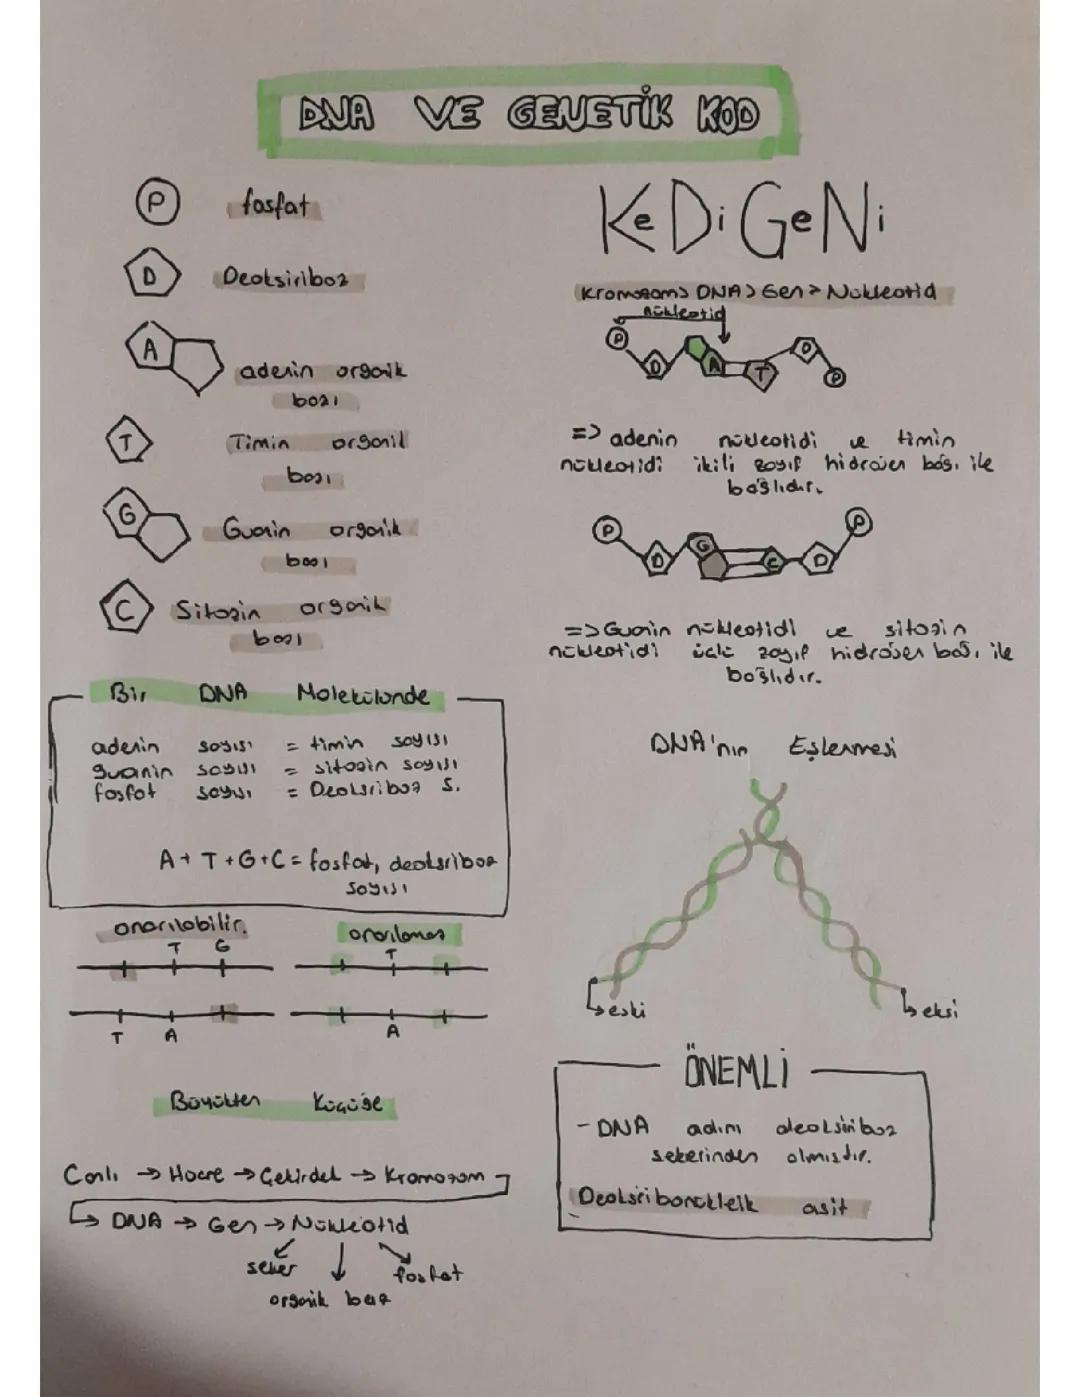 DNA VE GENETİK KOD
P fosfat
D Deoksiriboz
A adenin organik
bazı
T Timin organik
bazı
G Guanin organik
bazı
C Sitozin organik
bazı
Bir DNA Molekülünde
adenin sayısı = timin sayısı
guanin sayısı = sitozin sayısı
fosfat sayısı = Deoksiriboz S.
A+T+G+C = fosfat, deoksiriboz
sayısı
onarılabilir.
T G
T A
onarılamaz
T
A
Büyükten Küçüğe
Canlı → Hücre → Çekirdek → Kromozom
↳ DNA → Gen → Nükleotid
şeker
organik baz
fosfat
KeDiGeNi
Kromozom> DNA> Gen> Nükleotid
nükleotid
P D A T D P
=> adenin nükleotidi ve timin
nükleotidi ikili zayıf hidrojen bağı ile
bağlıdır.
P D G C D P
=> Guanin nükleotidi ve sitozin
nükleotidi üçlü zayıf hidrojen bağı ile
bağlıdır.
DNA'nın Eşlenmesi
eski
eksi
ÖNEMLİ
- DNA adını deoksiriboz
şekerinden almıştır.
Deoksiribonükleik asit